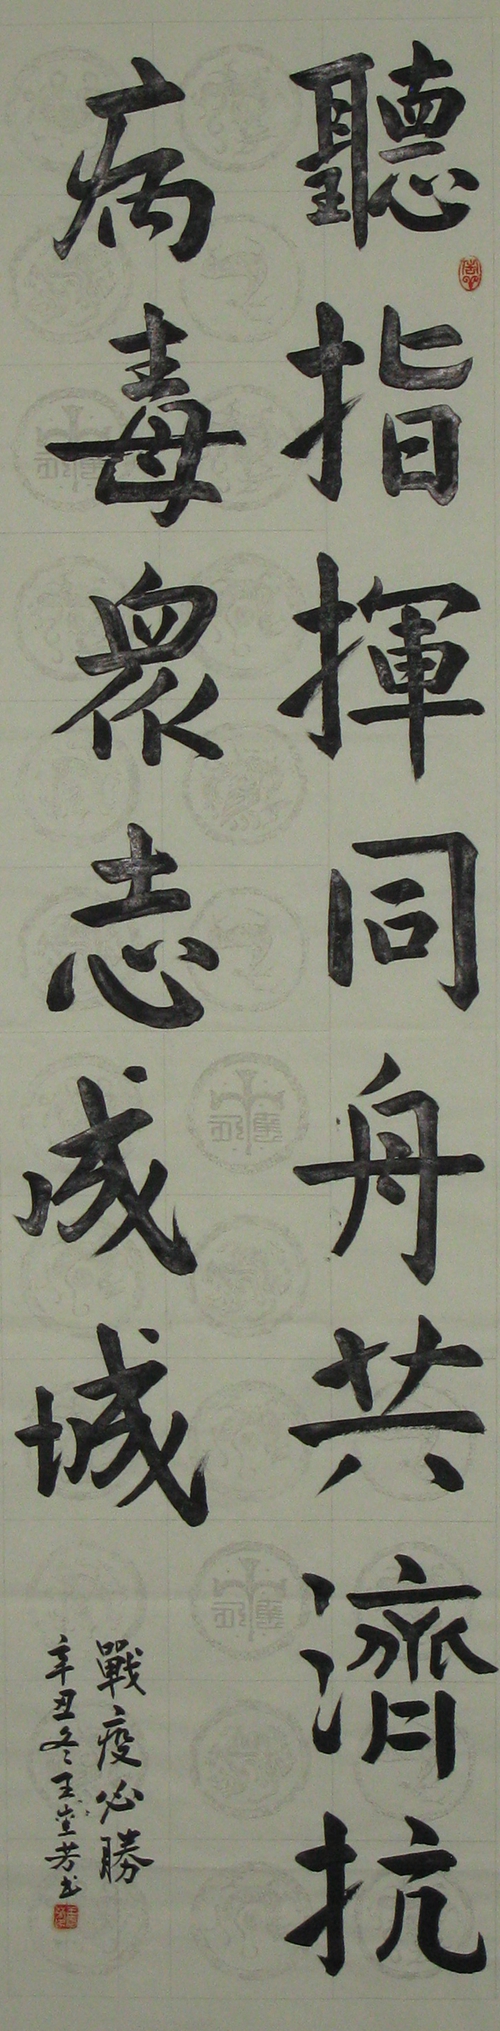 聽指揮同舟共濟抗
病毒衆志成城
戰疫必勝
辛丑冬王芳书